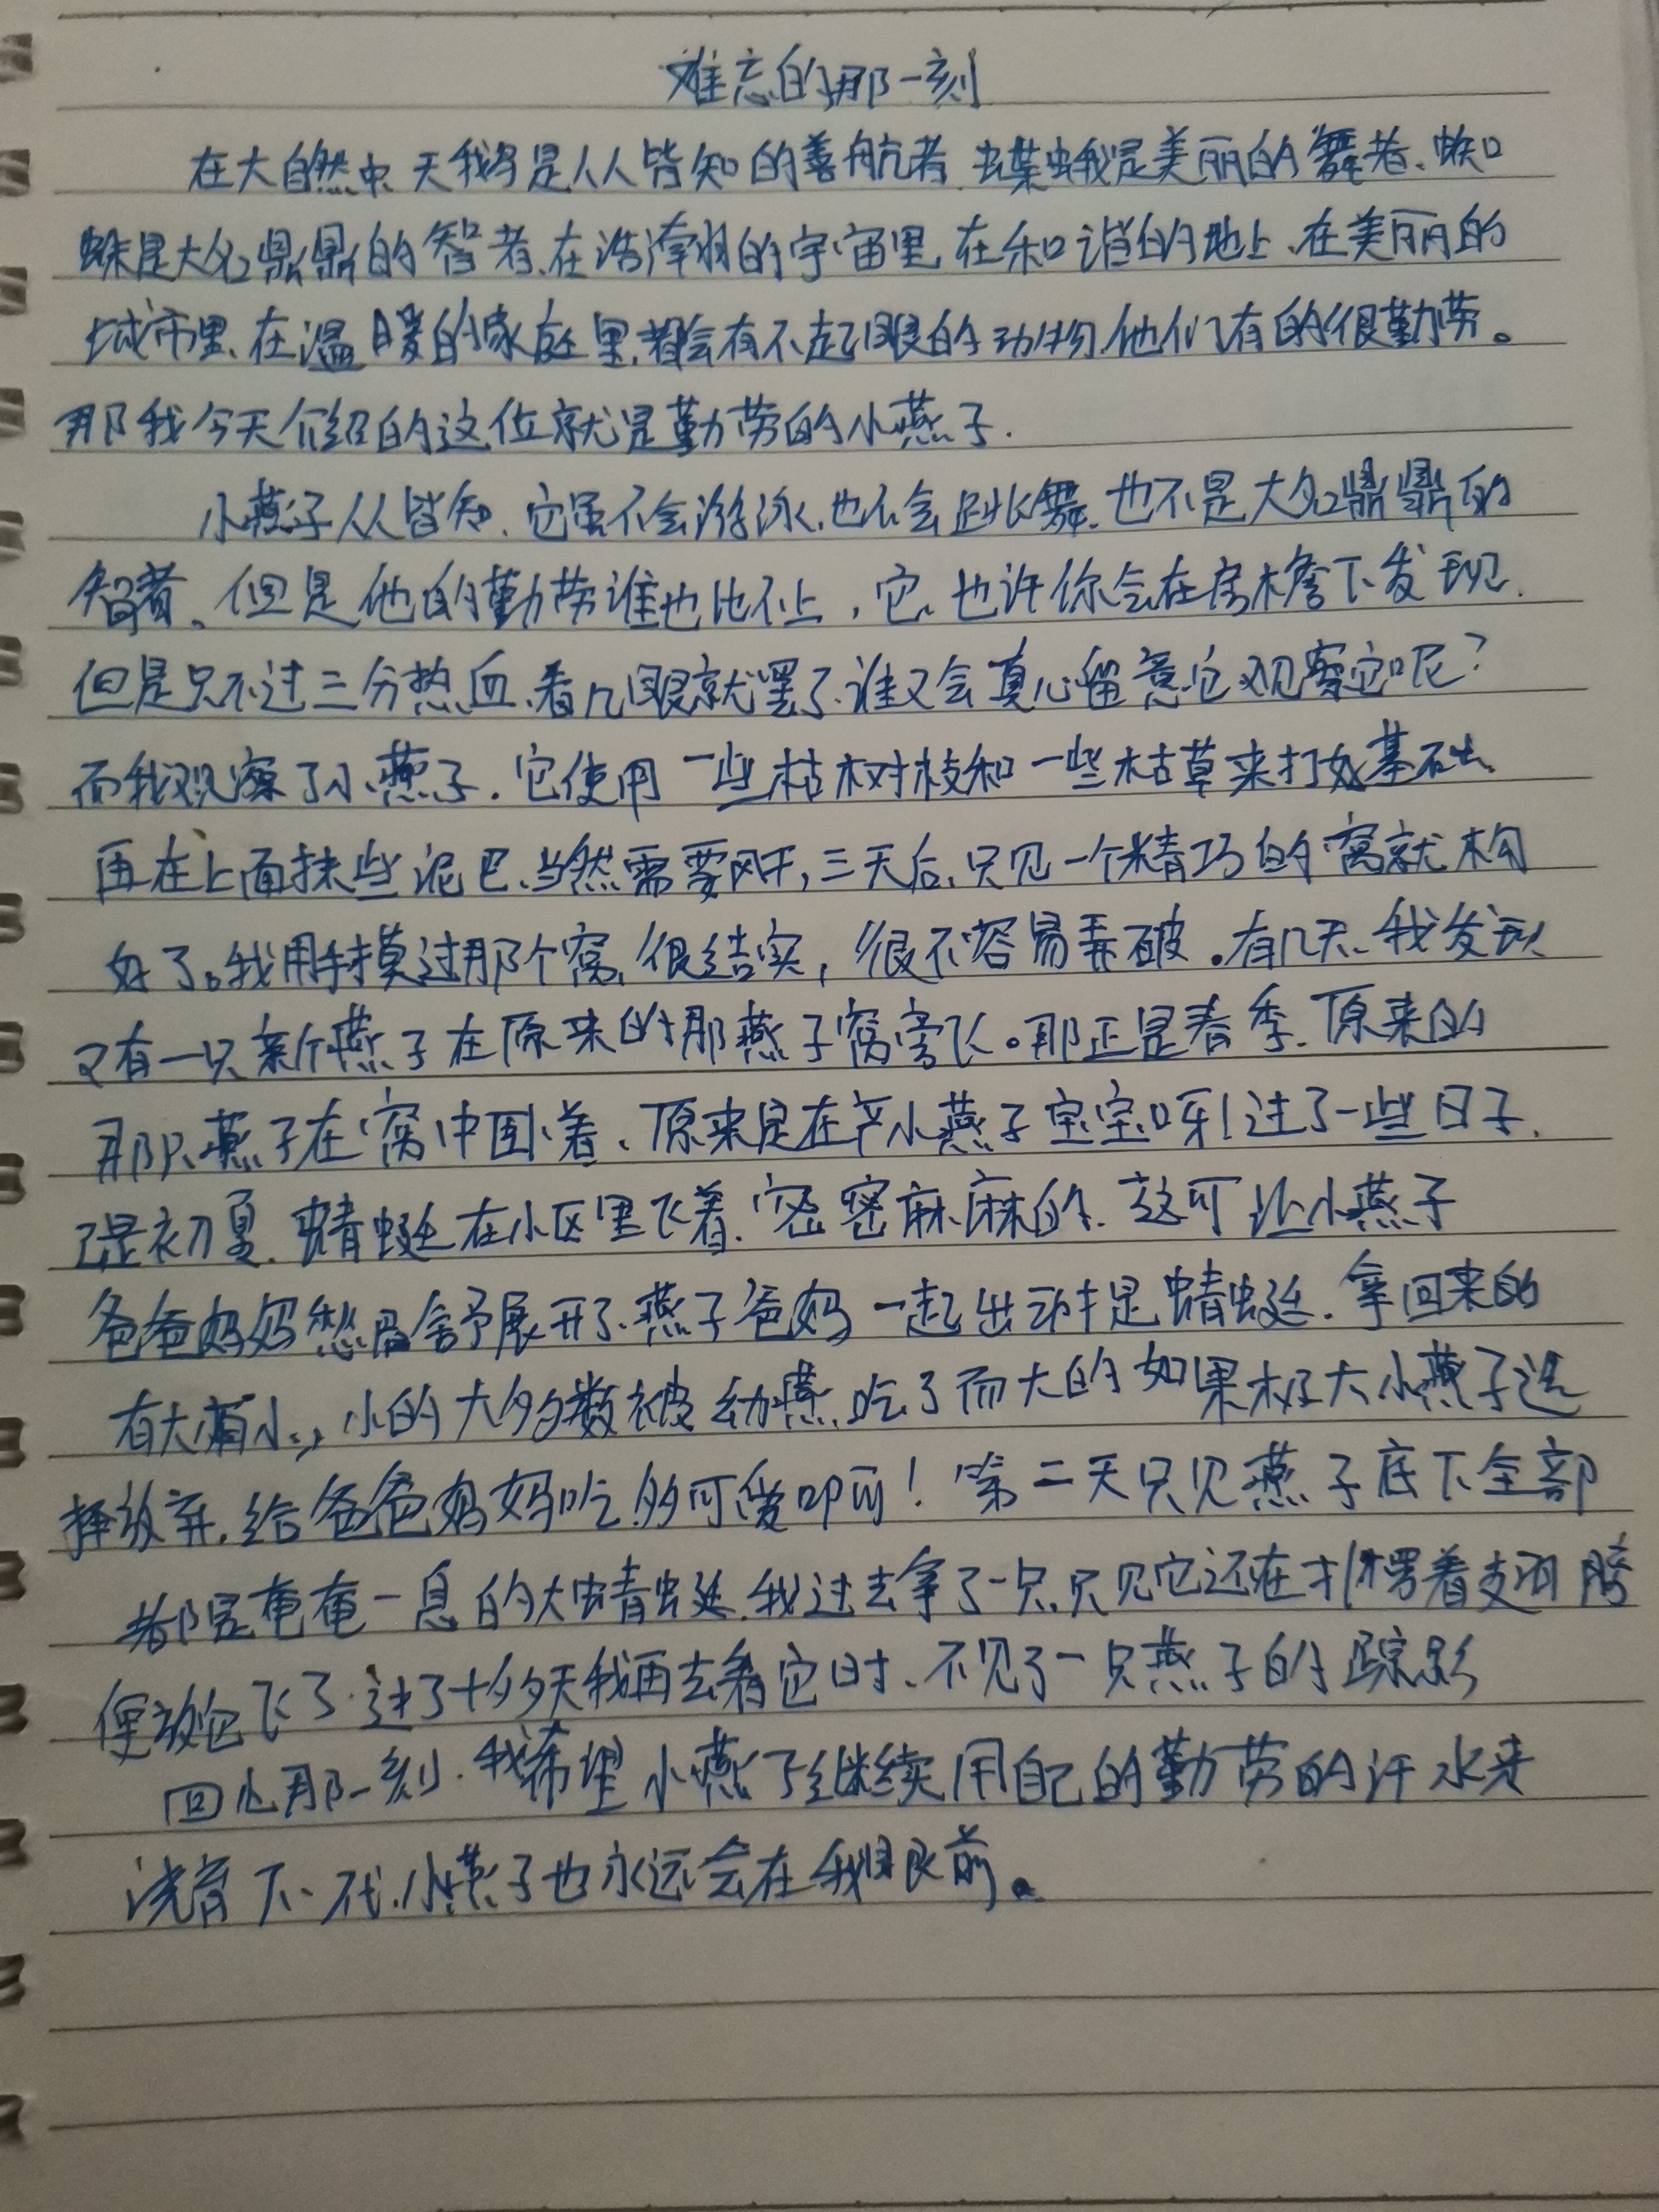 难忘的那一刻
在大自然中、天鹅是人人皆知的善航者、蝶蛾是美丽的舞者、蜘
蛛是大名鼎鼎的智者、在浩渺的宇宙里、在和谐的地上、在美丽的
城市里、在温暖的家庭里、都会有不起眼的动物、他们有的很勤劳。
那我今天介绍的这位就是勤劳的小燕子.
小燕子人人皆知、它虽不会游泳、也不会跳舞、也不是大名鼎鼎的
智者。但是他的勤劳谁也比不上，它、也许你会在房檐下发现、
但是只不过三分热血、看几眼就罢了、谁又会真心留意它观察它呢？
而我观察了小燕子、它使用一些枯树枝和一些枯草来打好基础、
再在上面抹些泥巴、当然需要风干，三天后、只见一个精巧的窝就构
好了。我用手摸过那个窝、很结实，很不容易弄破。有几天、我发现
又有一只新个燕子在原来的那燕子窝旁飞。那正是春季、原来的
那只燕子在窝中困着、原来是在产小燕子宝宝呀！过了一些日子、
已是初夏、蜻蜓在小区里飞着、密密麻麻的、这可让小燕子
爸爸妈妈愁眉舒展开了、燕子爸妈一起出动捉蜻蜓、拿回来的
有大有小，小的大多数被幼燕吃了而大的如果极大小燕子选
择放弃、给爸爸妈妈吃、多可爱呀！第二天只见燕子底下全部
都是奄奄一息的大蜻蜓、我过去拿了一只、只见它还在扑楞着翅膀
便放它飞了、过了十多天我再去看它时、不见了一只燕子的踪影
回忆那一刻、我希望小燕子继续用自己的勤劳的汗水来
浇育下一代、小燕子也永远会在我眼前。